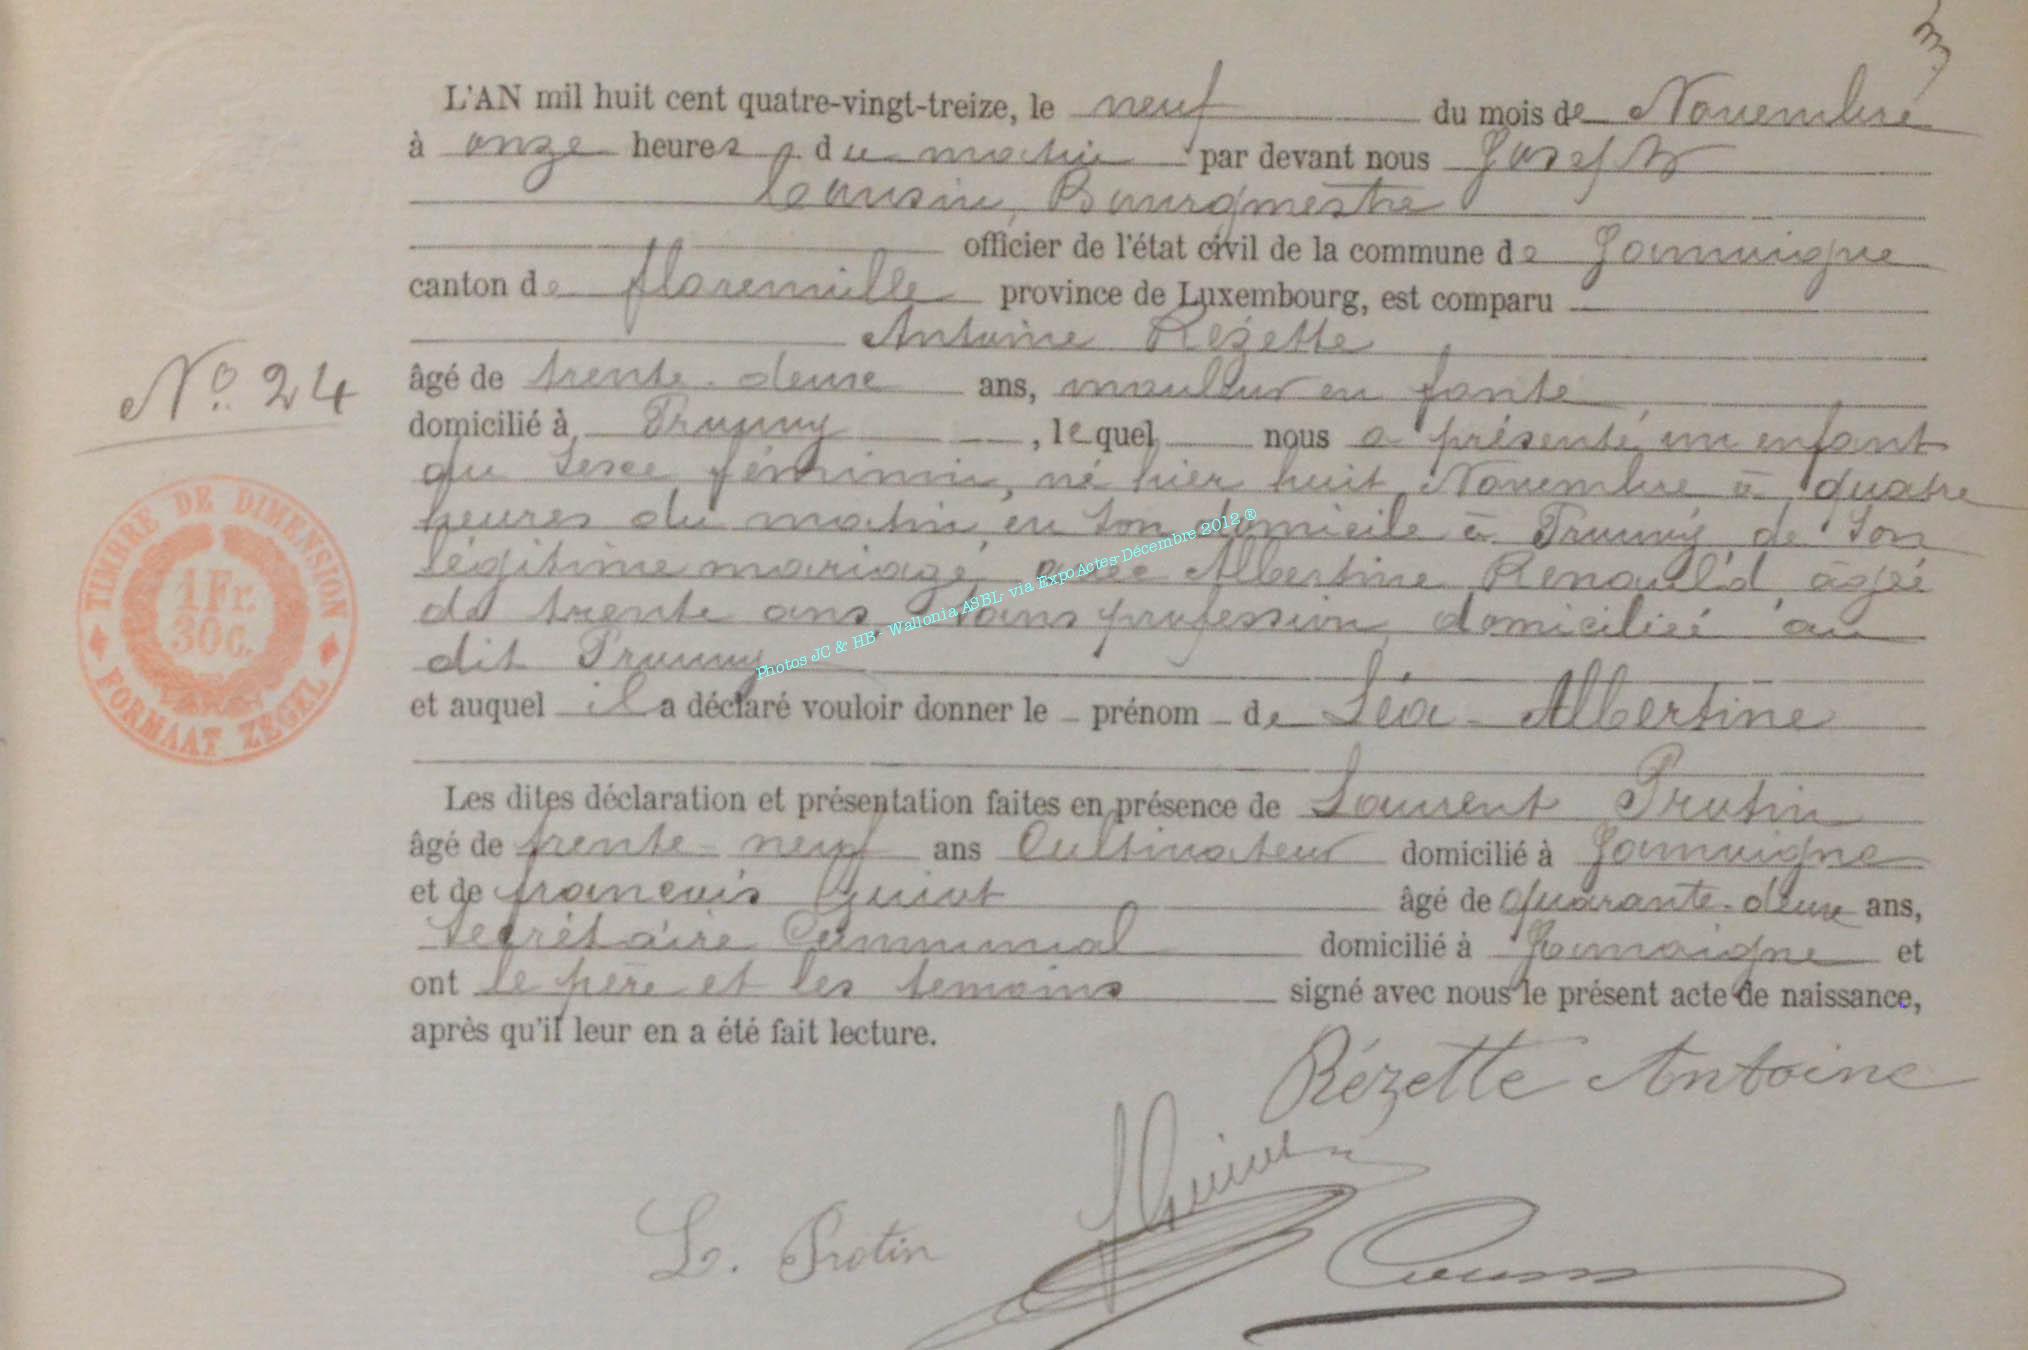 3
L'AN mil huit cent quatre-vingt-treize, le neuf du mois de Novembre
à onze heures du matin par devant nous Joseph
Cousin, Bourgmestre
officier de l'état civil de la commune de Jamoigne
canton de florenville province de Luxembourg, est comparu
Antoine Rézette
No. 24
âgé de trente-deux ans, mouleur en fonte,
domicilié à Prouvy, lequel nous a présenté un enfant
du sexe féminin, né hier huit Novembre à quatre
heures du matin, en son domicile à Prouvy de son
légitime mariage avec Albertine Renauld âgée
de trente ans, sans profession domiciliée au
dit Prouvy
et auquel il a déclaré vouloir donner le prénom de Léa Albertine
Les dites déclaration et présentation faites en présence de Laurent Protin
âgé de trente-neuf ans Cultivateur domicilié à Jamoigne
et de françois Guiot âgé de quarante-deux ans,
Secrétaire Communal domicilié à Jamoigne et
ont le père et les temoins signé avec nous le présent acte de naissance,
après qu'il leur en a été fait lecture.
Rézette Antoine
L. Protin
Cousin
TIMBRE DE DIMENSION
1 Fr.
30 C.
FORMAAT ZEGEL
Photos JC & HB - Wallonia ASBL- via ExpoActes-Décembre 2012 ®